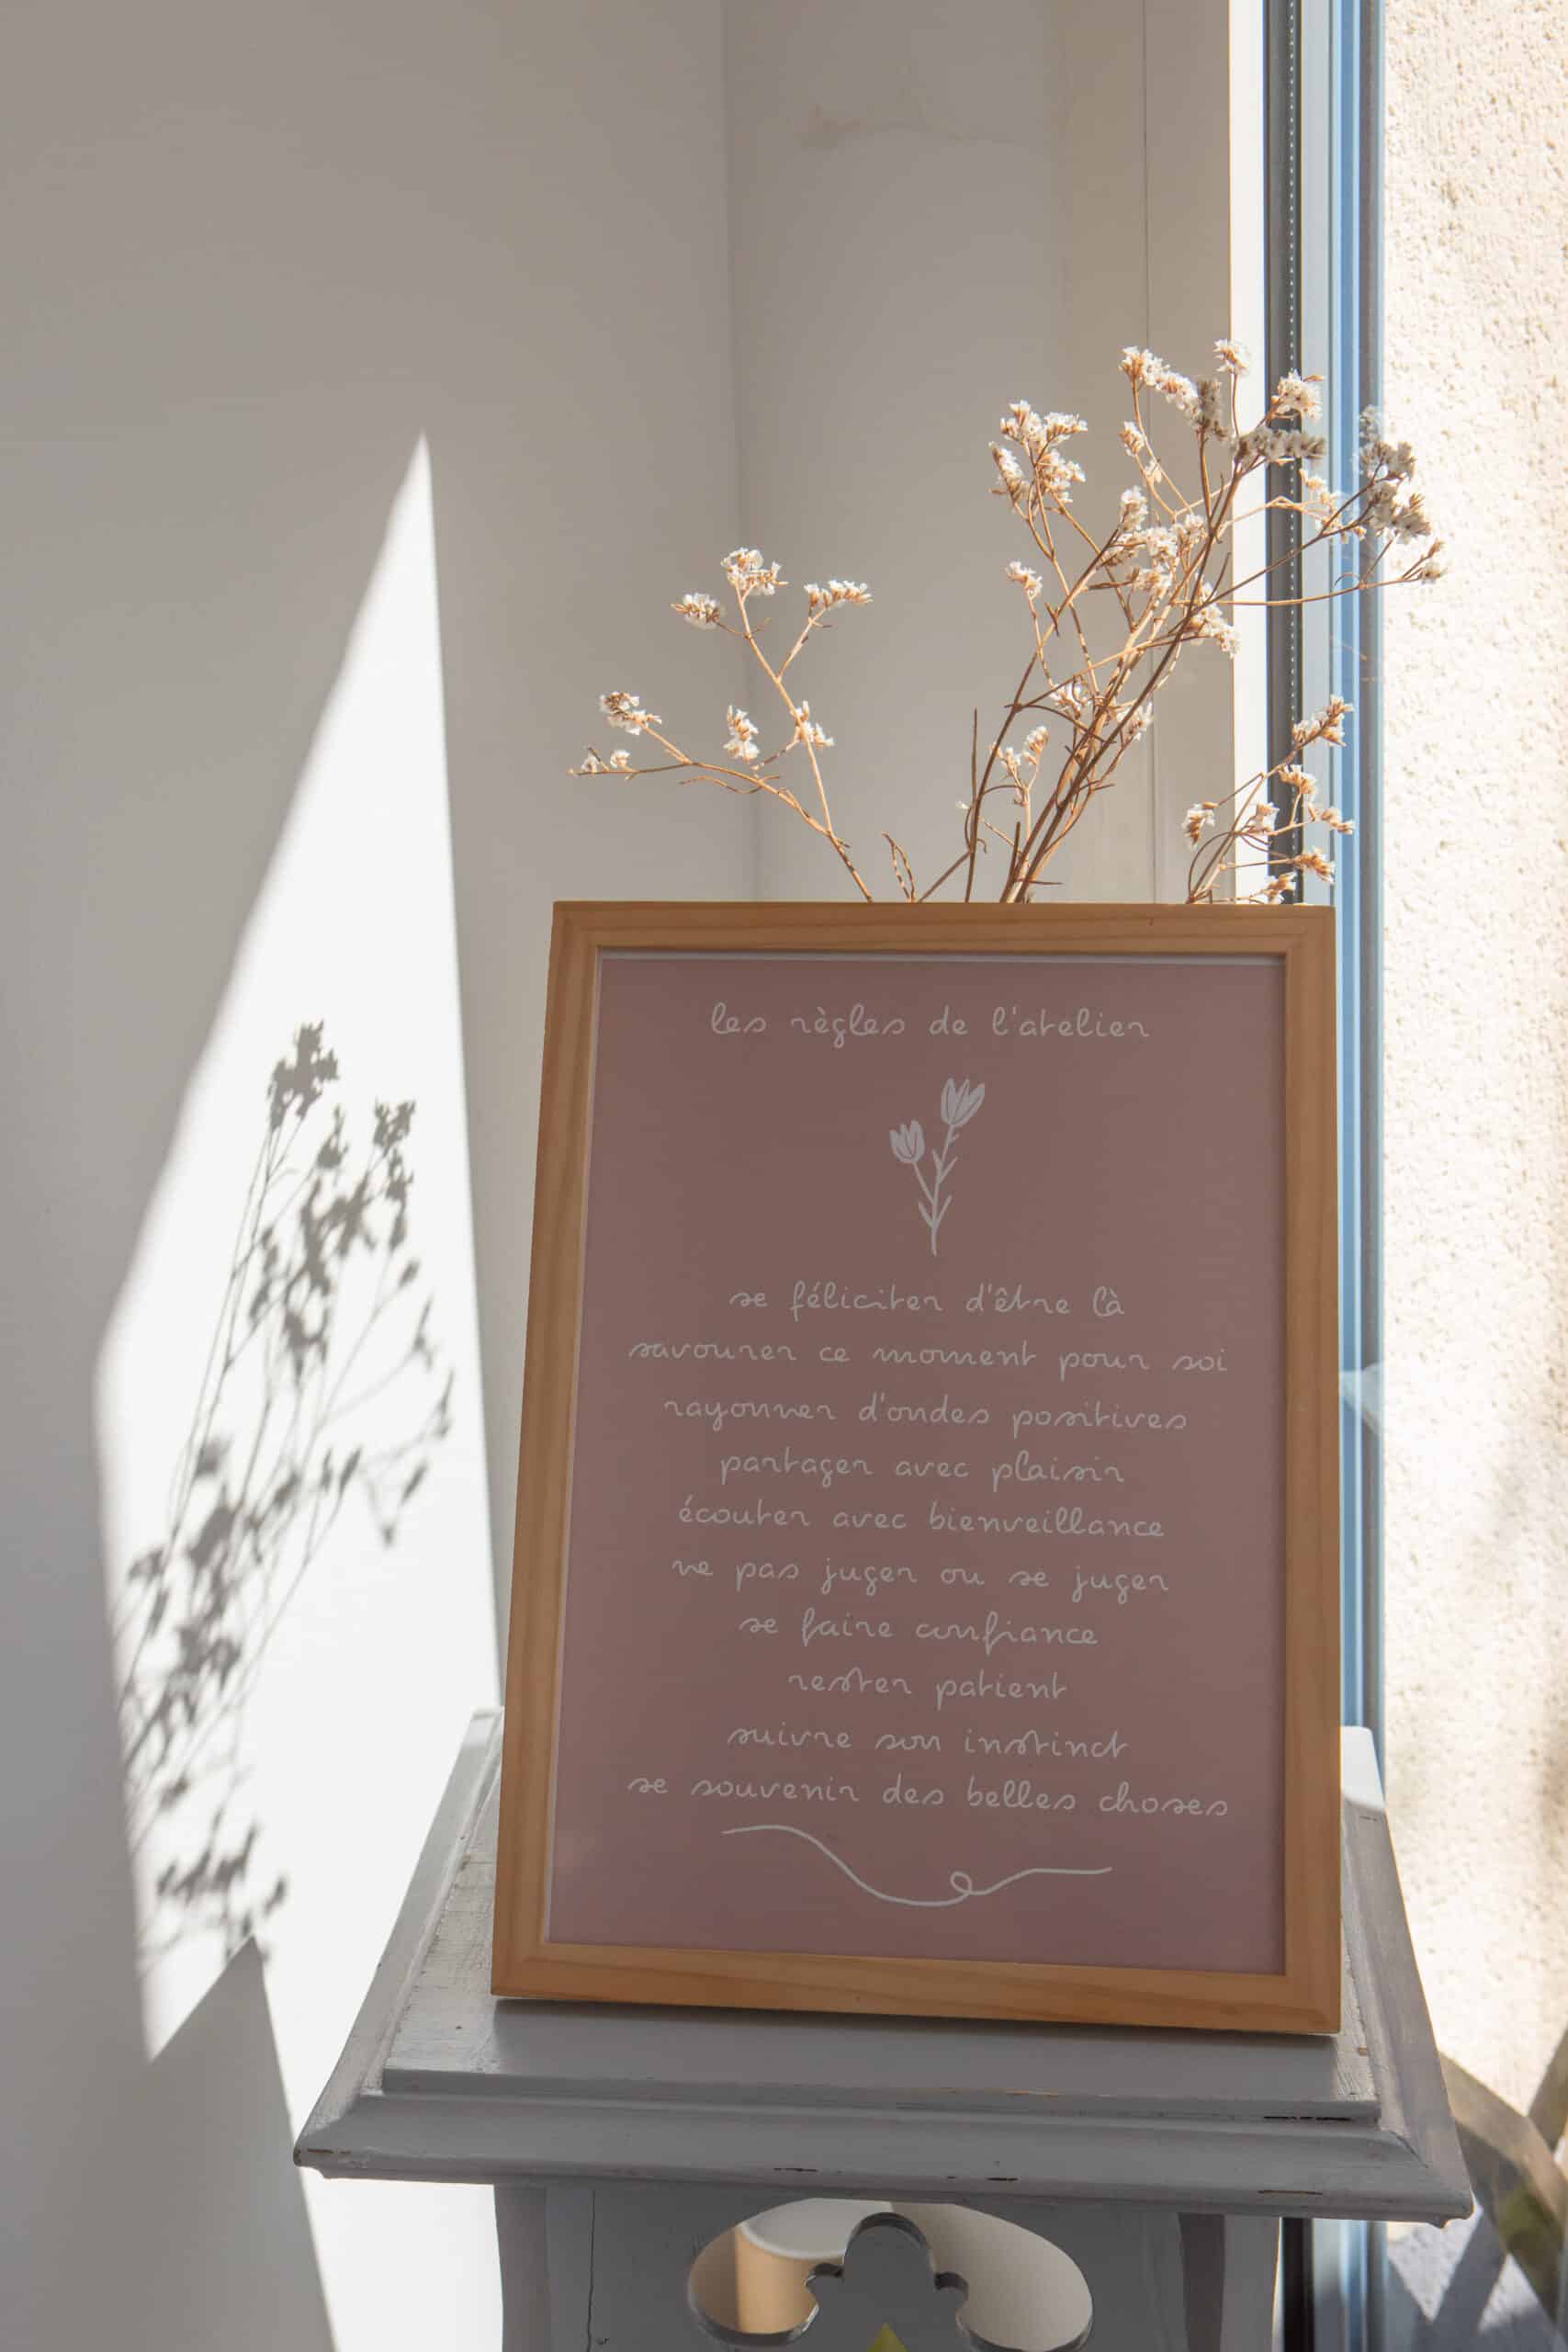 les règles de l'atelier
se féliciter d'être là
savourer ce moment pour soi
rayonner d'ondes positives
partager avec plaisir
écouter avec bienveillance
ne pas juger ou se juger
se faire confiance
rester patient
suivre son instinct
se souvenir des belles choses